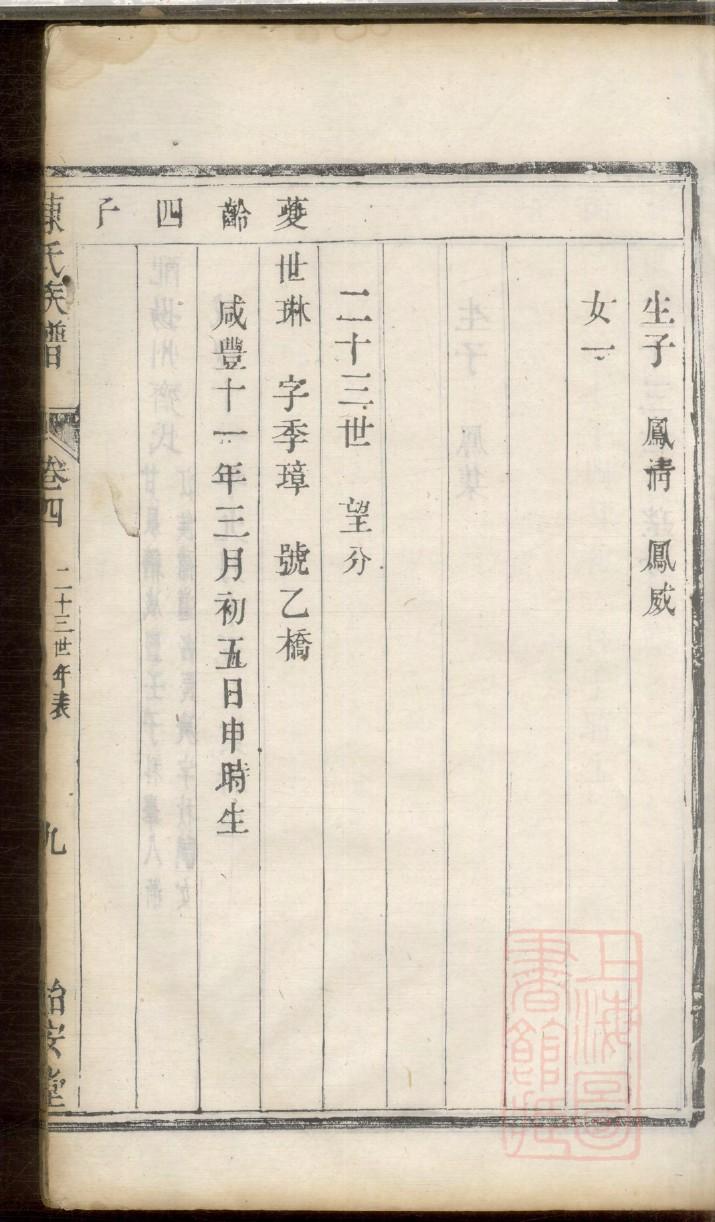 生子 鳳淸 鳳威
女一
二十三世 望分
夔齡四子
世琳 字季璋 號乙橋
咸豐十一年三月初五日申時生
陳氏族譜 卷四 二十三世年表 九 怡安堂
上海圖書館藏